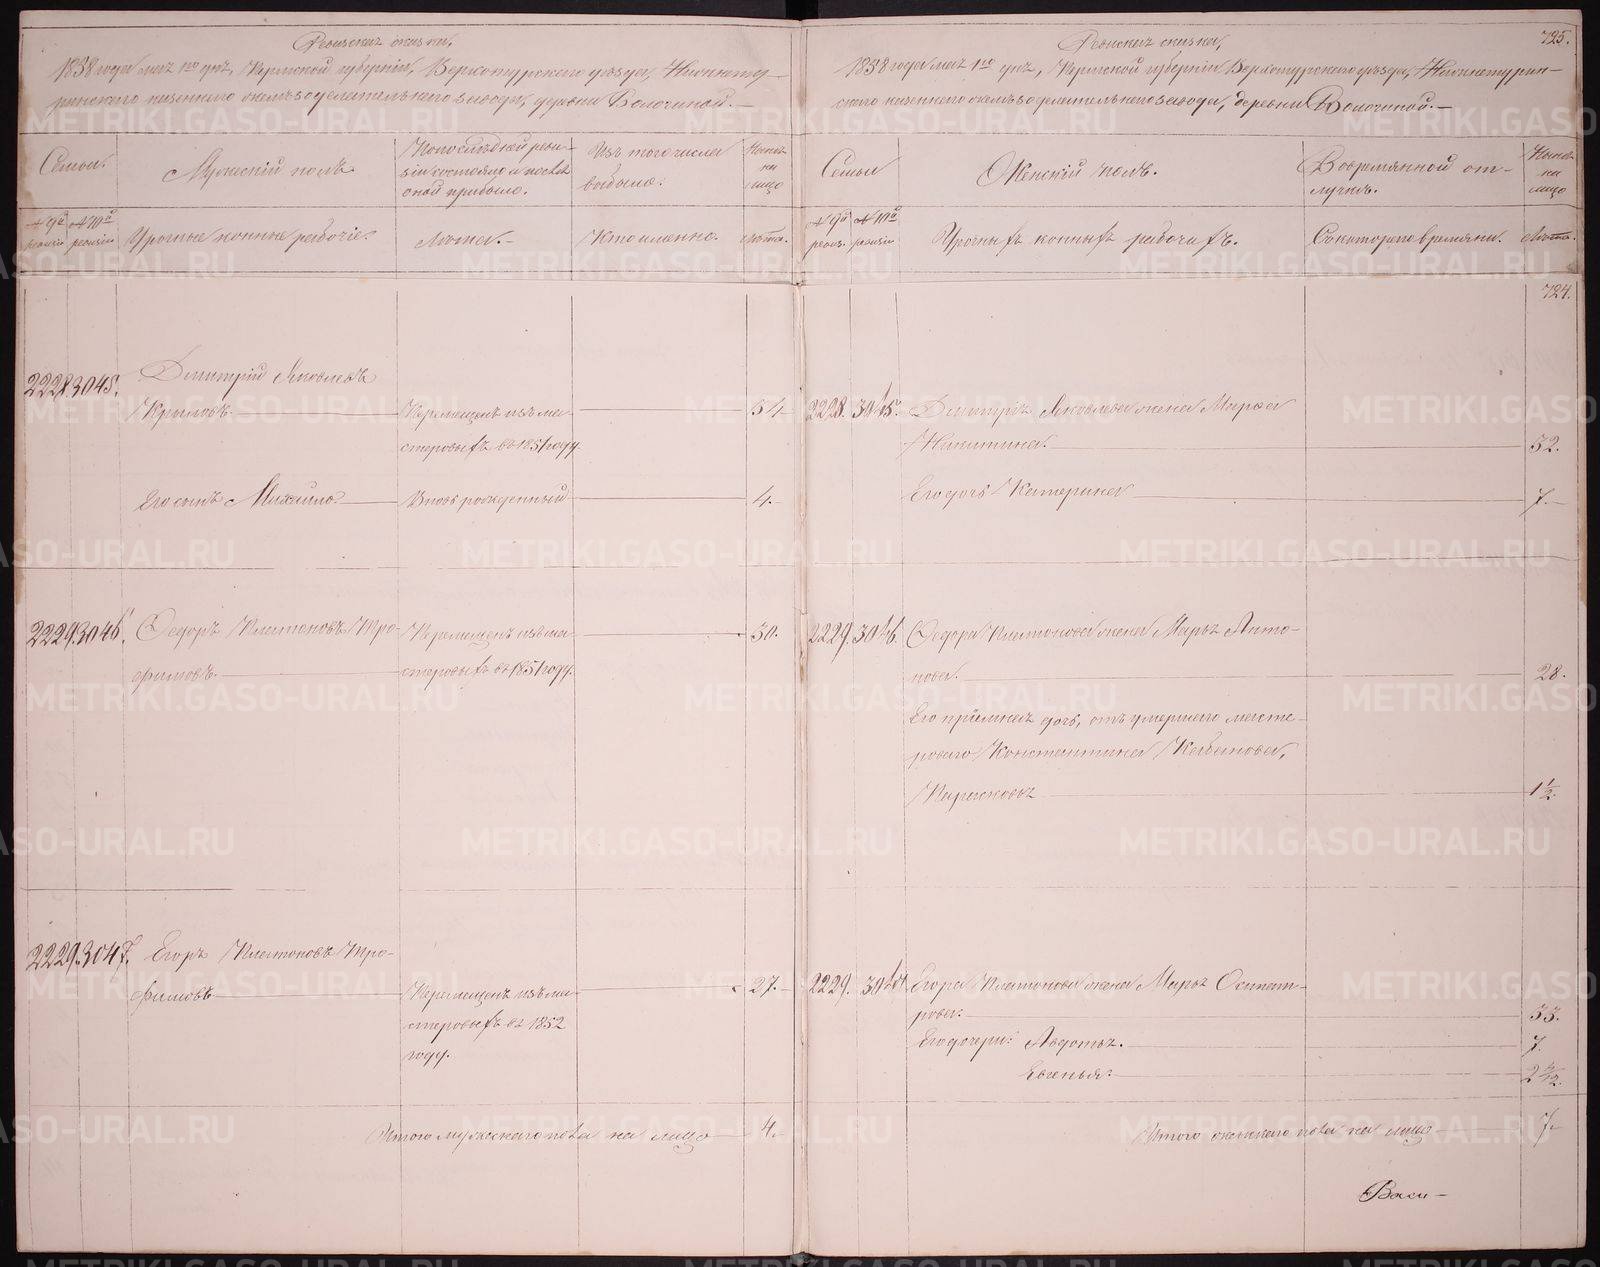 Ревизская сказка,
1858 года мая 1го дня, Пермской губерніи, Верхотурскаго уезда, Нижнету-
ринскаго казеннаго железоделательнаго завода, деревни Волочиной.
Семьи.
Мужескій полъ.
По последней реви-
зіи состояло и после
оной прибыло.
Изъ того числа
выбыло.
Ныне
на
лицо
№ 9й ревизіи
№ 10й ревизіи
Урочные конные рабочіе.
Лета.
Кто именно.
Лета.
2228. 3045.
Дмитрій Яковлевъ
Крыловъ.
Перемещенъ изъ ма-
стеровыхъ въ 1851 году.
34
Его сынъ Михайло
Вновь рожденный
4.
2229. 3046.
Федоръ Платоновъ Тро-
фимовъ.
Перемещенъ изъ ма-
стеровыхъ въ 1851 году.
30.
2229. 3047.
Егоръ Платоновъ Тро-
фимовъ
Перемещенъ изъ ма-
стеровыхъ въ 1852
году.
27.
Итого мужескаго пола на лицо
4.
725.
Ревизская сказка,
1858 года мая 1го дня, Пермской губерніи Верхотурскаго уезда, Нижнетурин-
скаго казеннаго железоделательнаго завода, деревни Волочиной.
Семьи
Женскій полъ.
Во временной от-
лучке.
Ныне
на
лицо
№ 9й ревиз.
№ 10й ревизіи
Урочныхъ конныхъ рабочихъ.
Съ котораго времяни.
Лета.
724.
2228. 3045.
Дмитрія Яковлева жена Марфа
Никитина.
32.
Его дочь Катерина
7.
2229. 3046.
Федора Платонова жена Марья Анто-
нова.
28.
Его пріемная дочь, отъ умершаго масте-
роваго Константина Кабанова,
Парасковья
1 1/2.
2229. 3047
Егора Платонова жена Марья Осипат-
рова.
33.
Его дочери: Авдотья.
7.
Евгенья.
Итого женскаго пола на лицо
7.
Васи-
METRIKI.GASO-URAL.RU